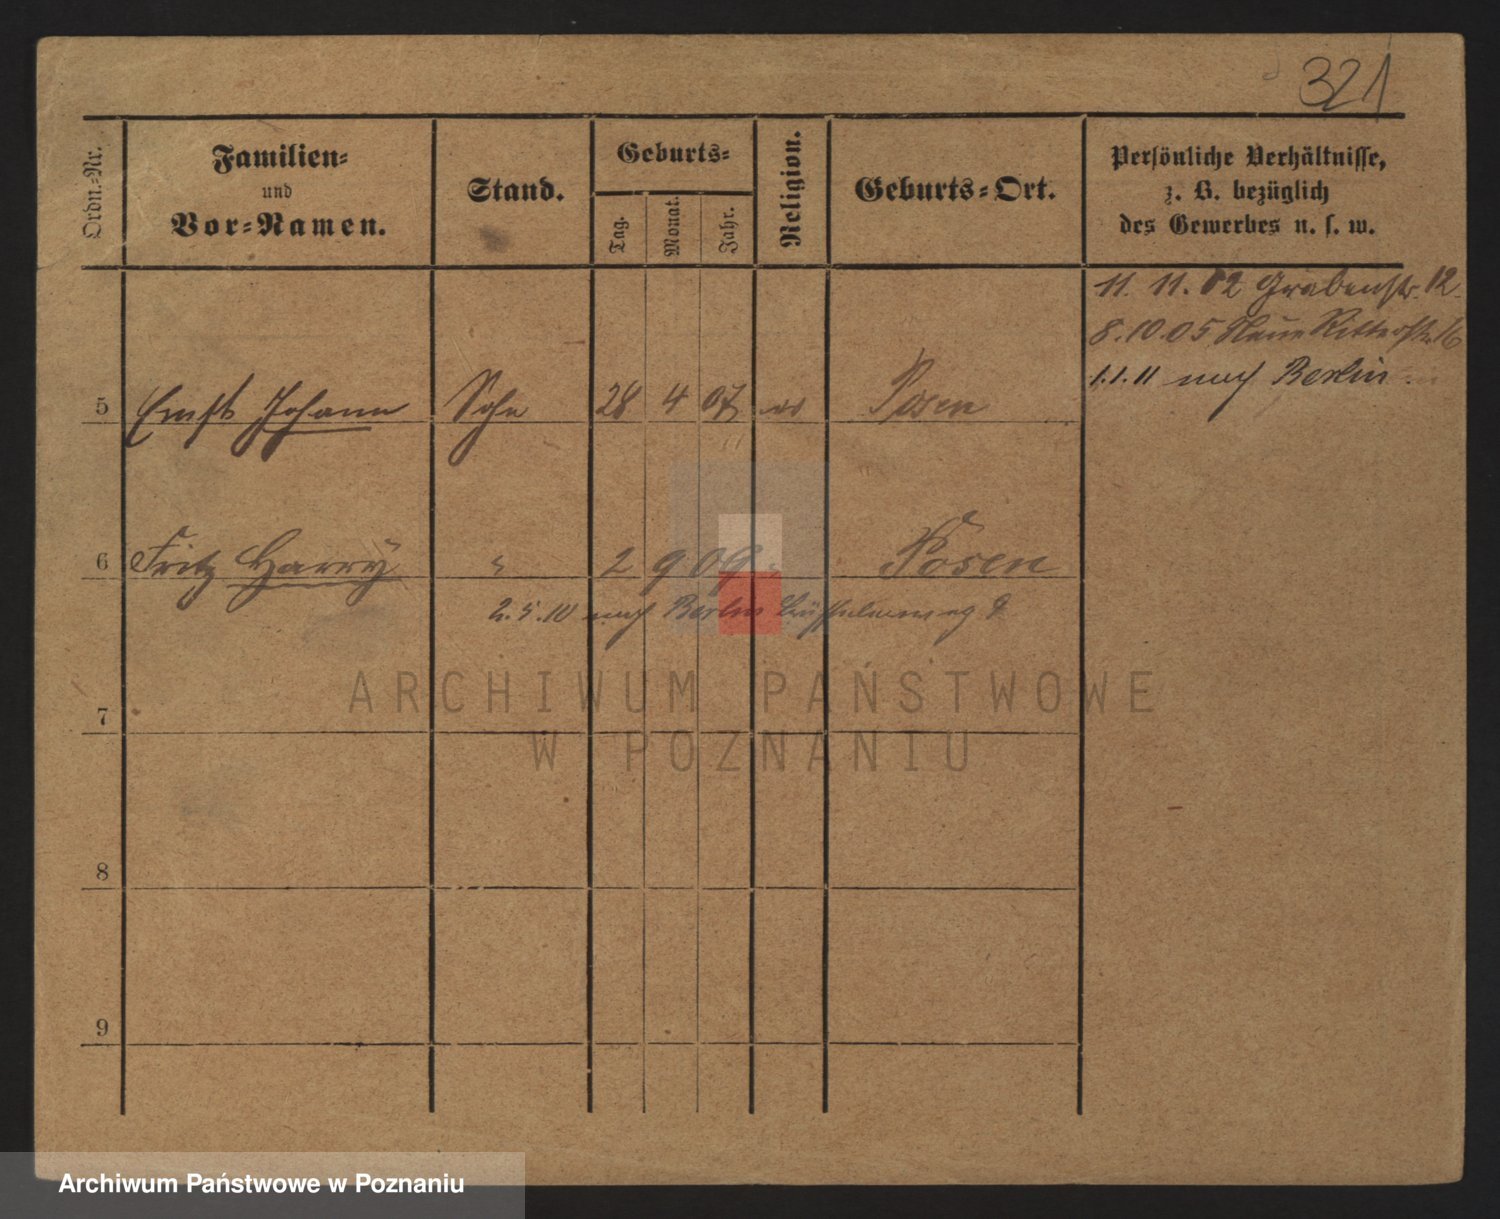 321
Ordn.-Nr.
Familien-
und
Vor-Namen.
Stand.
Geburts-
Tag.
Monat.
Jahr.
Religion.
Geburts-Ort.
Persönliche Verhältnisse,
z. B. bezüglich
des Gewerbes u. s. w.
11. 11. 02 Grabenstr. 12.
8. 10. 05 Neue Ritterstr. 16
1. 1. 11 nach Berlin.
5 Ernst Johann Sohn 28 4 07 Posen
6 Fritz Harry " 2 9 09 " Posen
2. 5. 10 nach Berlin
7
8
9
ARCHIWUM PAŃSTWOWE
W POZNANIU
Archiwum Państwowe w Poznaniu